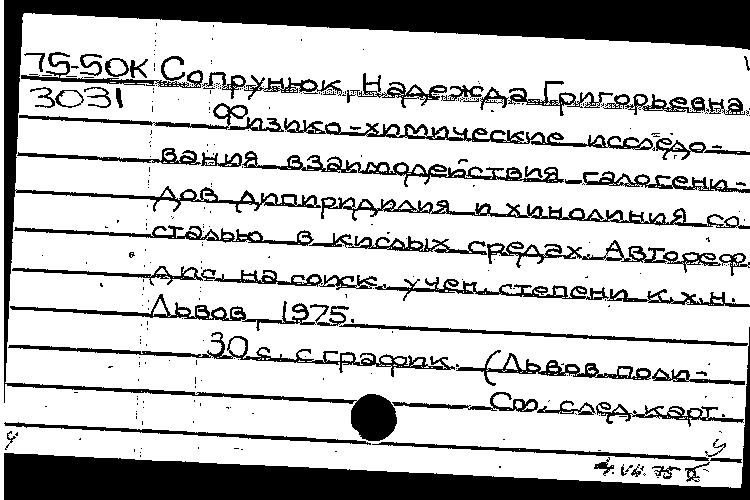 75-50К Сопрунюк, Надежда Григорьевна
3031
Физико-химические исследо-
вания взаимодействия галогени-
дов дипиридилия и хинолиния со
сталью в кислых средах. Автореф.
дис. на соиск. учен. степени к.х.н.
Львов, 1975.
30 с. с график. (Львов. поли-
См. след. карт.